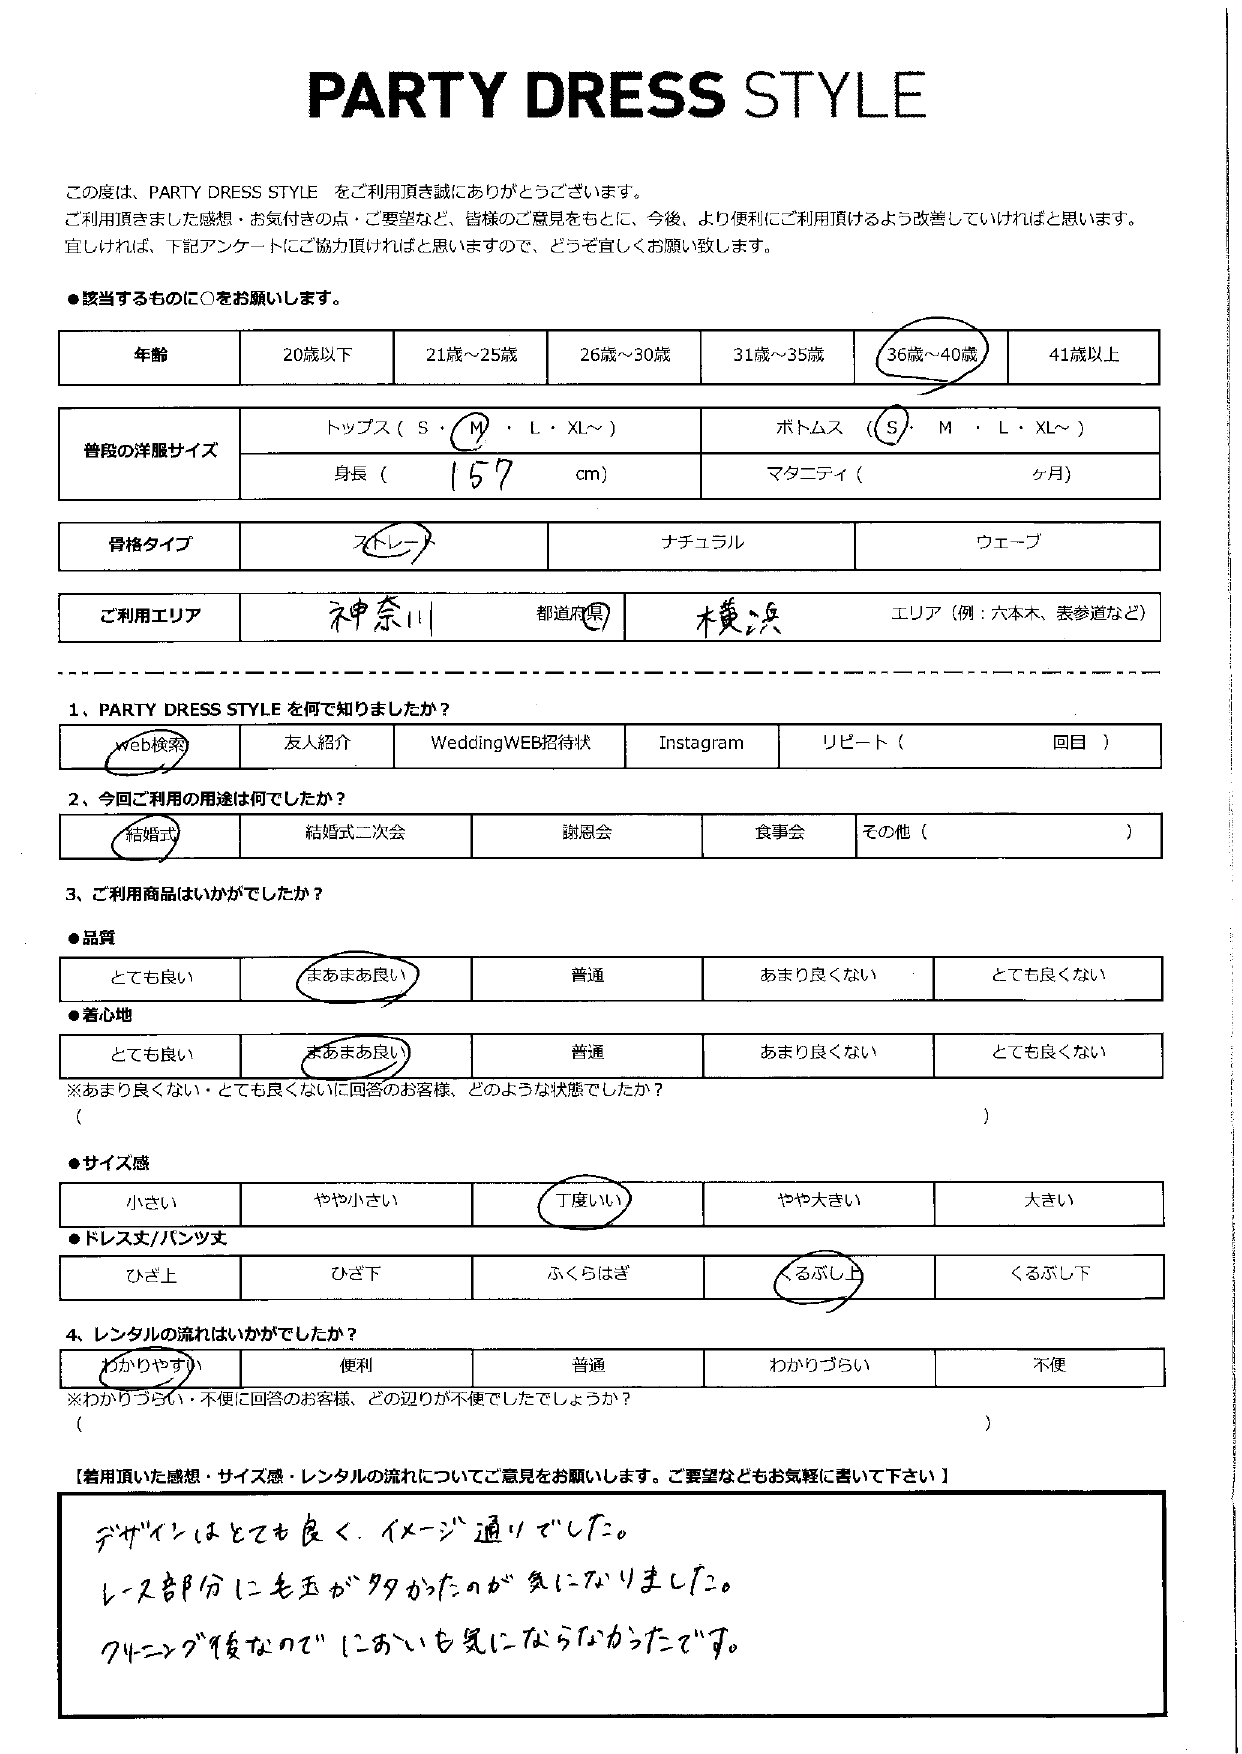 PARTY DRESS STYLE
この度は、PARTY DRESS STYLE をご利用頂き誠にありがとうございます。
ご利用頂きました感想・お気付きの点・ご要望など、皆様のご意見をもとに、今後、より便利にご利用頂けるよう改善していければと思います。
宜しければ、下記アンケートにご協力頂ければと思いますので、どうぞ宜しくお願い致します。
●該当するものに○をお願いします。
年齢 20歳以下 21歳～25歳 26歳～30歳 31歳～35歳 36歳～40歳 41歳以上
普段の洋服サイズ トップス ( S ・ M ・ L ・ XL～ ) ボトムス ( S ・ M ・ L ・ XL～ )
身長 ( 157 cm) マタニティ ( ヶ月)
骨格タイプ ストレート ナチュラル ウェーブ
ご利用エリア 神奈川 都道府県 横浜 エリア（例：六本木、表参道など）
1、PARTY DRESS STYLE を何で知りましたか？
web検索 友人紹介 WeddingWEB招待状 Instagram リピート ( 回目 )
2、今回ご利用の用途は何でしたか？
結婚式 結婚式二次会 謝恩会 食事会 その他 ( )
3、ご利用商品はいかがでしたか？
●品質
とても良い まあまあ良い 普通 あまり良くない とても良くない
●着心地
とても良い まあまあ良い 普通 あまり良くない とても良くない
※あまり良くない・とても良くないに回答のお客様、どのような状態でしたか？
( )
●サイズ感
小さい やや小さい 丁度いい やや大きい 大きい
●ドレス丈/パンツ丈
ひざ上 ひざ下 ふくらはぎ くるぶし上 くるぶし下
4、レンタルの流れはいかがでしたか？
わかりやすい 便利 普通 わかりづらい 不便
※わかりづらい・不便に回答のお客様、どの辺りが不便でしたでしょうか？
( )
【着用頂いた感想・サイズ感・レンタルの流れについてご意見をお願いします。ご要望などもお気軽に書いて下さい 】
デザインはとても良く、イメージ通りでした。
レース部分に毛玉が多かったのが気になりました。
クリーニング後なのでにおいも気にならなかったです。